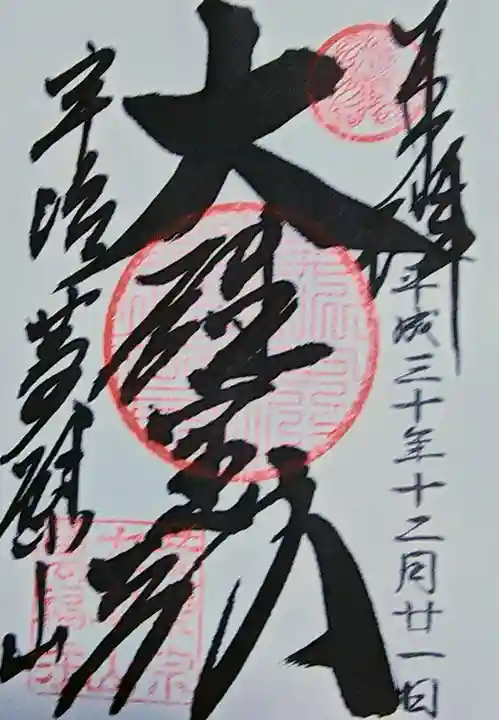 奉拝
平成三十年十二月廿一日
大雄宝殿
宇治黄檗山